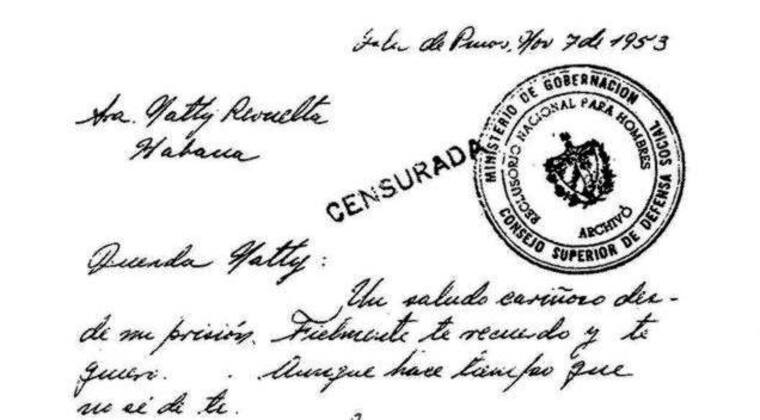 Isla de Pinos, Nov 7 de 1953
Sra. Natty Revuelta
Habana
CENSURADA
MINISTERIO DE GOBERNACION
CONSEJO SUPERIOR DE DEFENSA SOCIAL
RECLUSORIO NACIONAL PARA HOMBRES
ARCHIVO
Querida Natty:
Un saludo cariñoso des-
de mi prisión. Fielmente te recuerdo y te
quiero. . Aunque hace tiempo que
no sé de ti.